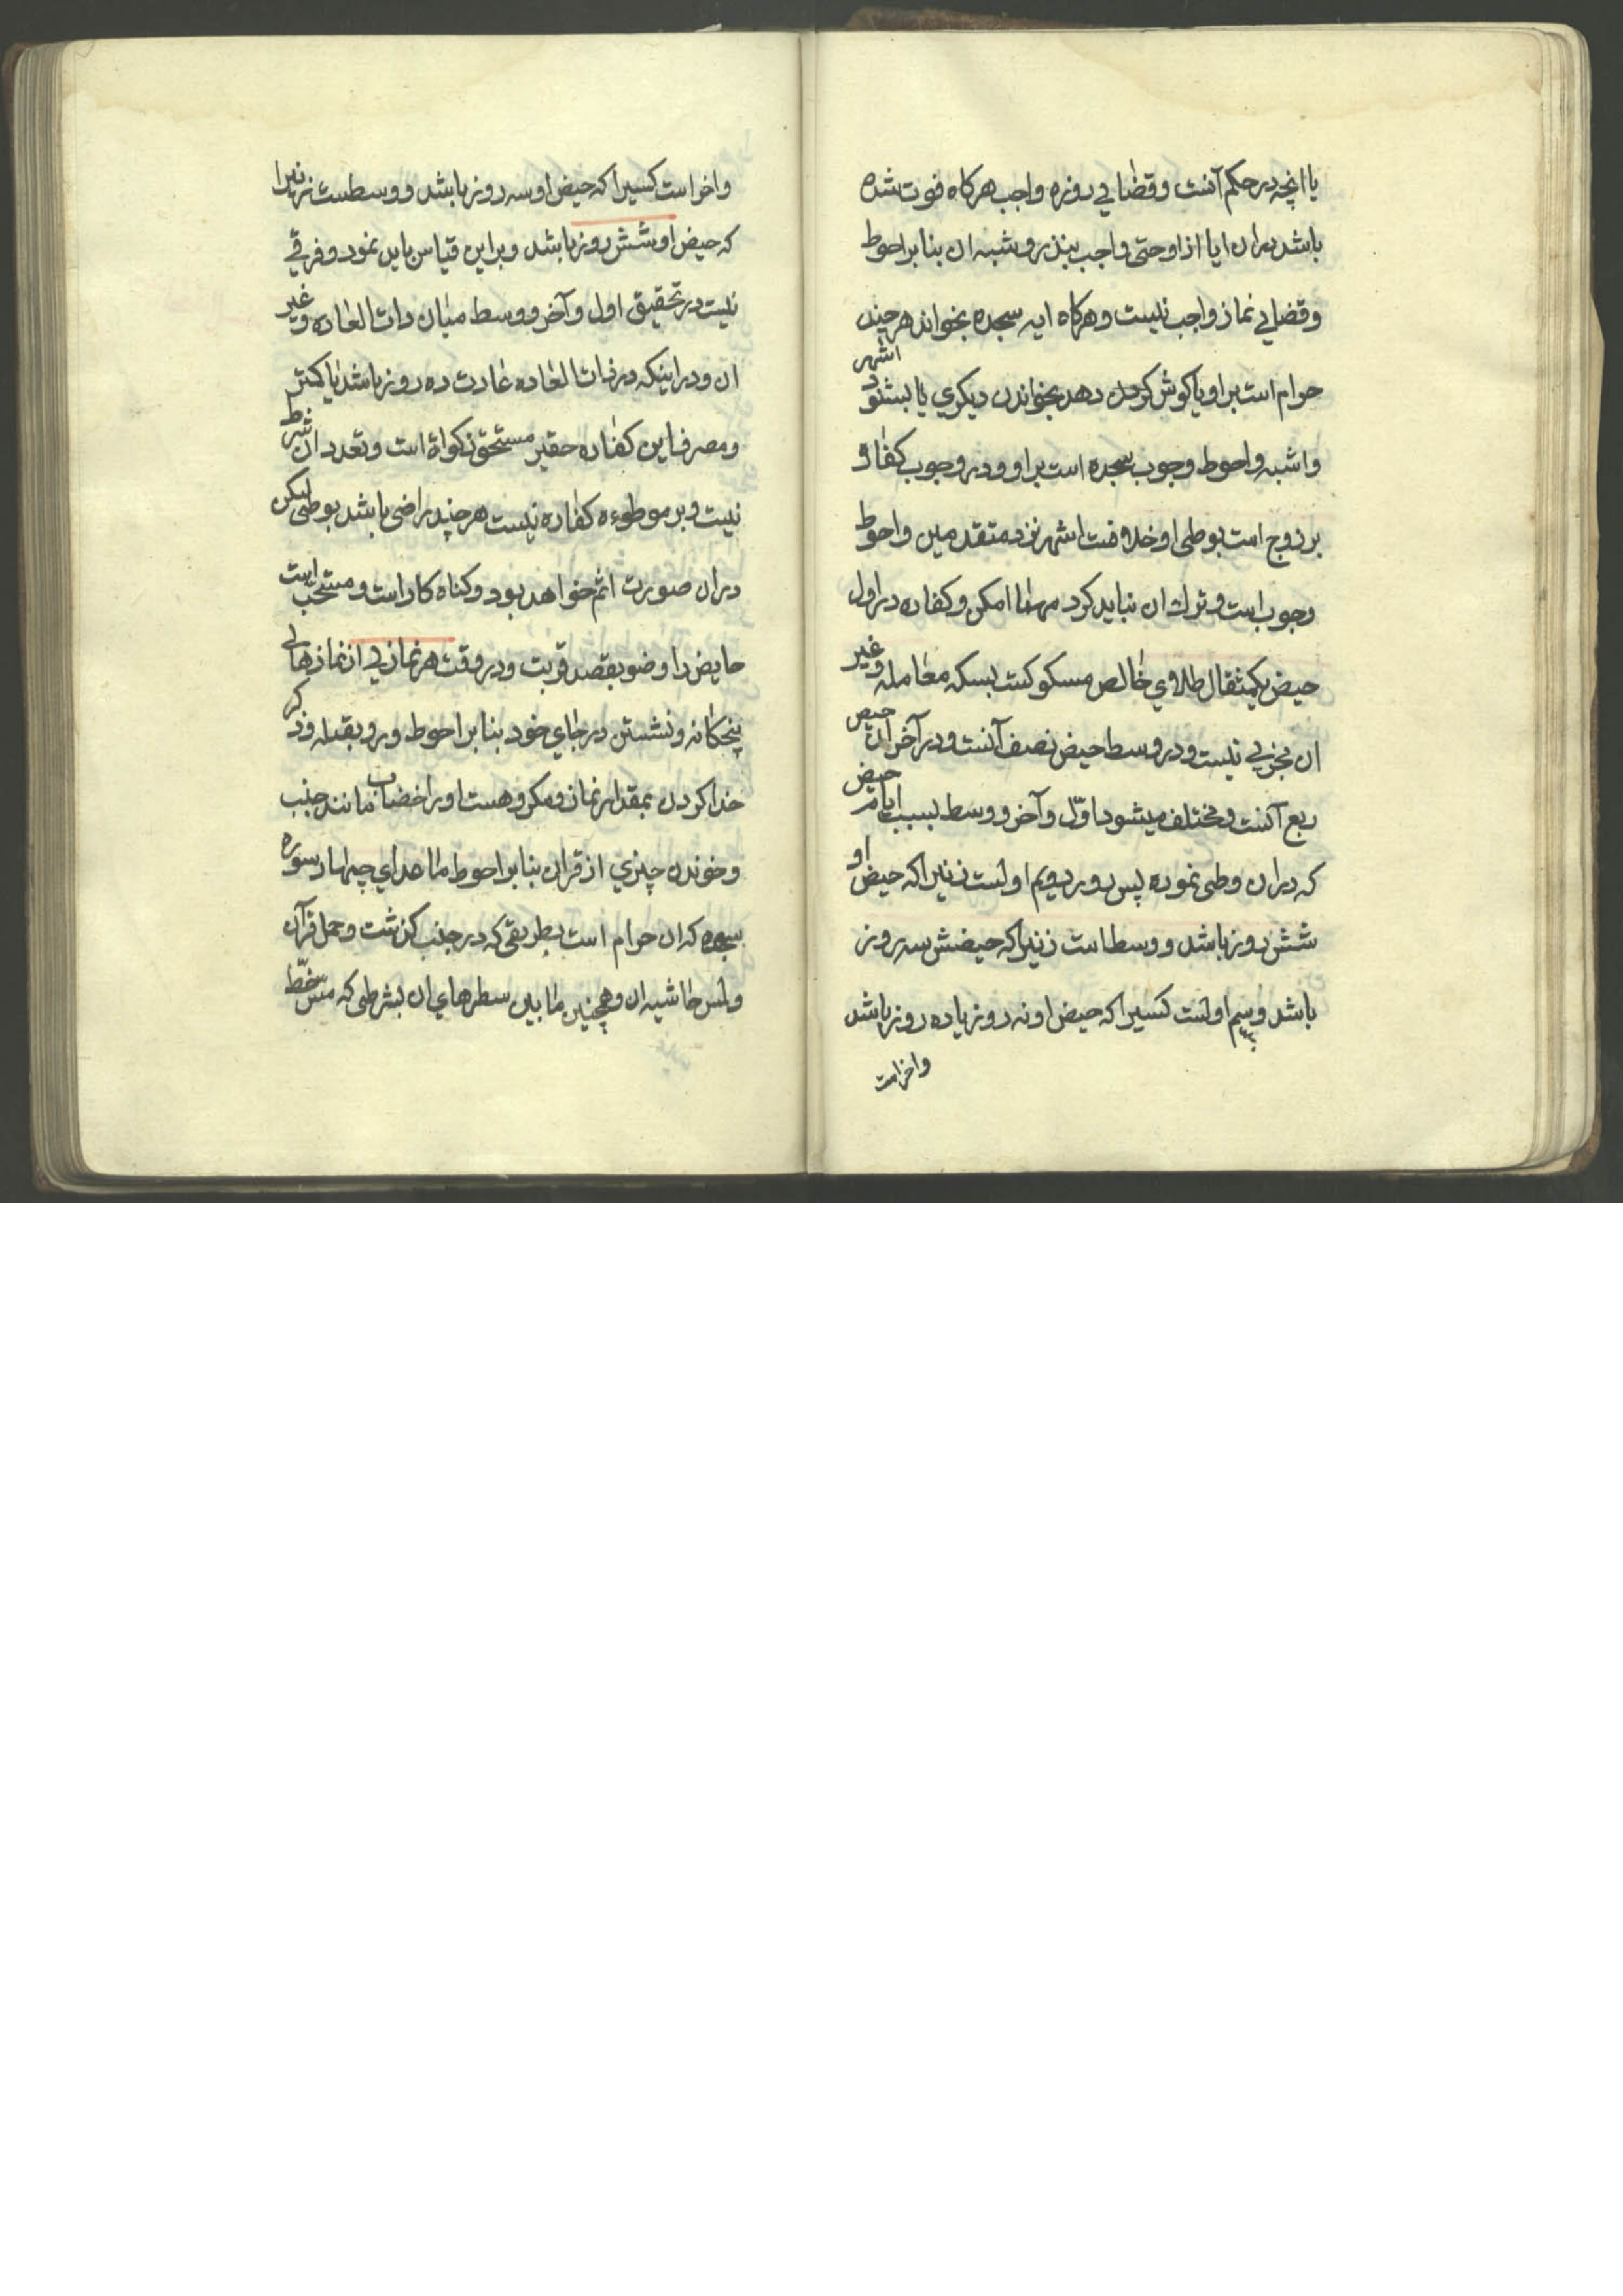 یا انچه در حکم آنست و قضای روزه واجب هرکاه فوت شده
باشد دران ایا از او حتی واجب بنذر و شبه ان بنا بر احوط
و قضای نماز واجب نیست و هرکاه ایه سجده بخواند هر چند
حرام است بر او یا کوش کردن دهد بخواندن دیکری یا بشنود اشهر
و اشبه و احوط وجوب سجده است بر او و در وجوب کفاره
بر زوج است بوطی او خلافست اشهر نزد متقدمین و احوط
وجوب است و ترک ان نباید کرد مهما امکن و کفاره در اول
حیض یکمثقال طلای خالص مسکوکست بسکه معامله و غیر
ان مجزی نیست و در وسط حیض نصف آنست و در آخر ان حیض
ربع آنست و مختلف میشود اوّل و آخر و وسط بسبب ایام حیض
که دران وطی نموده پس روز دویم اولست زنیرا که حیض او
شش روز باشد و وسط است زنیرا که حیضش سه روز
باشد و سیم اولست کسیرا که حیض او نه روز یا ده روز باشد
و اخر است
و اخر است کسیرا که حیض او سه روز باشد و وسطست زنیرا
که حیض او شش روز باشد و براین قیاس باید نمود و فرقی
نیست در تحقیق اول و آخر و وسط میان ذات العاده و غیر
ان و در اینکه در ذات العاده عادت ده روز باشد یا کمتر
و مصرف این کفاره حقیر مستحق زکواة است و تعدد ان شرط
نیست و بر موطوءه کفاره نیست هر چند راضی باشد بوطی لیکن
دران صورت اثم خواهد بود و کناه کار است و مستحب است
حایض را وضو بقصد قربت و در وقت هر نمازی از نمازهای
پنجکانه و نشستن در جای خود بنا بر احوط و رو بقبله و ذکر
خدا کردن بمقدار نماز و مکروهست او را خضاب مانند جنب
و خوندن چیزی از قران بنا بر احوط ما عدای چهار سوره
سجده که ان حرام است بطریقی که در جنب کذشت و حمل قرآن
و لمس حاشیه ان و همچنین مابین سطرهای ان بشرطی که مسّ خطّ